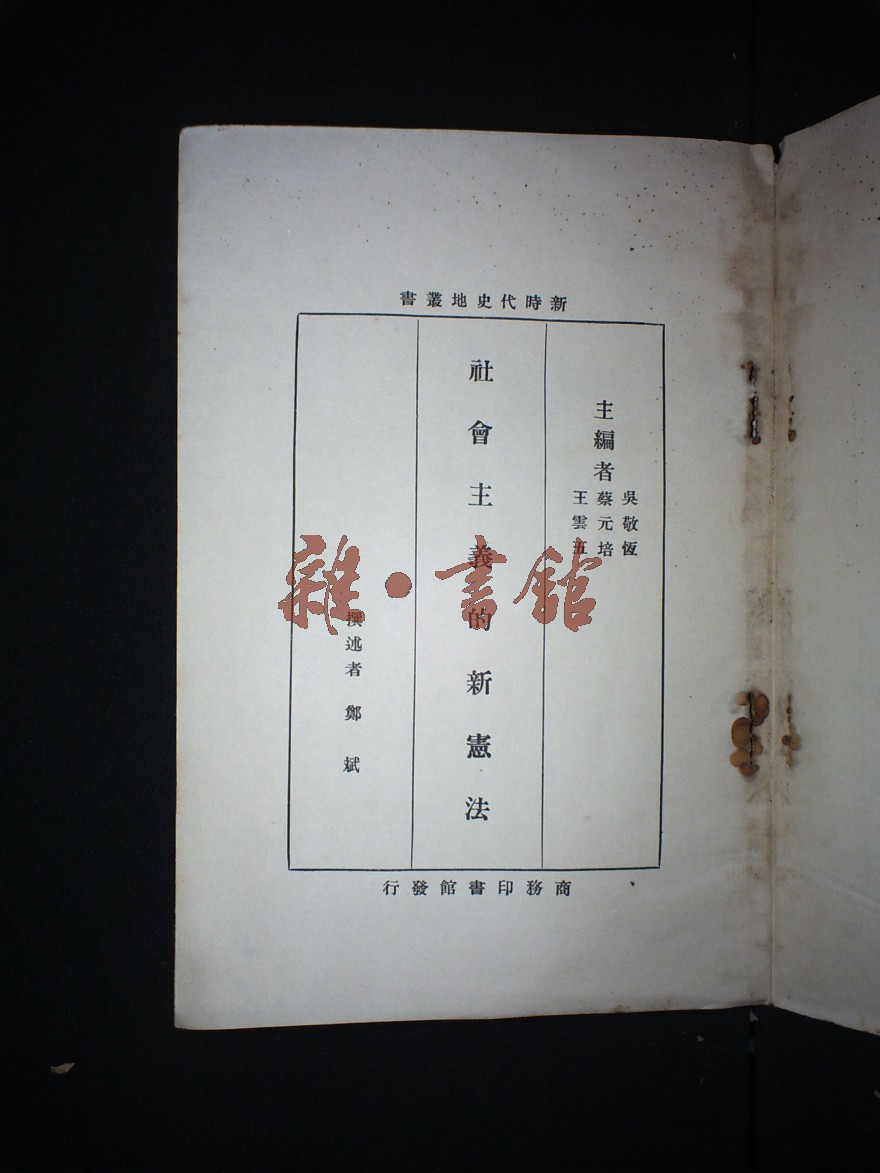 新時代史地叢書
主編者
吳敬恆
蔡元培
王雲五
社會主義的新憲法
撰述者 鄭斌
商務印書館發行
雜·書館